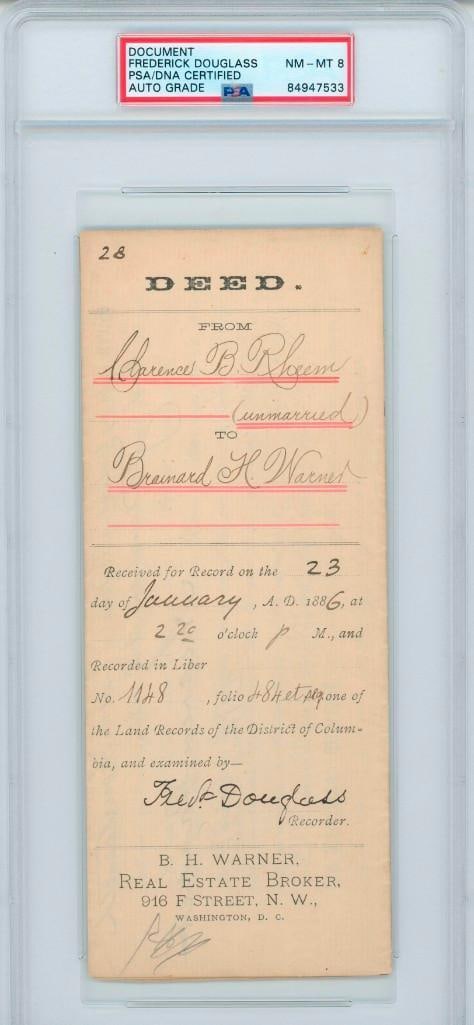 DOCUMENT
FREDERICK DOUGLASS NM-MT 8
PSA/DNA CERTIFIED
AUTO GRADE PSA 84947533
28
DEED.
FROM
Clarence B. Rheem
(unmarried)
TO
Brainard H. Warner
Received for Record on the 23
day of January, A. D. 1886, at
2 20 o'clock p M., and
Recorded in Liber
No. 1148, folio 484 et seq one of
the Land Records of the District of Colum-
bia, and examined by—
Fredk Douglass
Recorder.
B. H. WARNER,
REAL ESTATE BROKER,
916 F STREET, N. W.,
WASHINGTON, D. C.